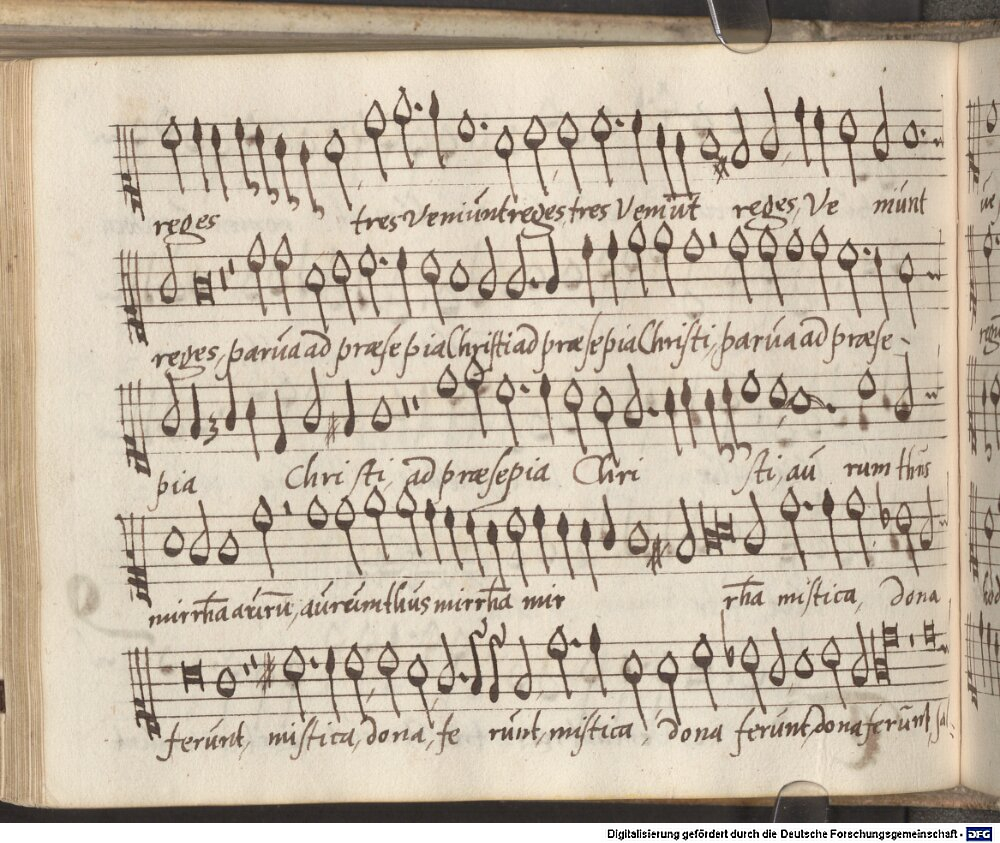 reges tres Veniūnt reges, tres Veniūt reges, Ve niūnt
reges, parūa ad præsepia Christi ad præsepia Christi, parūa ad præse-
pia Christi, ad præsepia Chri sti, aū rum thūs
mirrha aurū, aurūm thūs mirrha mir rha mistica, dona
ferūnt, mistica, dona, fe rūnt, mistica dona ferūnt, dona ferūnt, sal
Digitalisierung gefördert durch die Deutsche Forschungsgemeinschaft - DFG